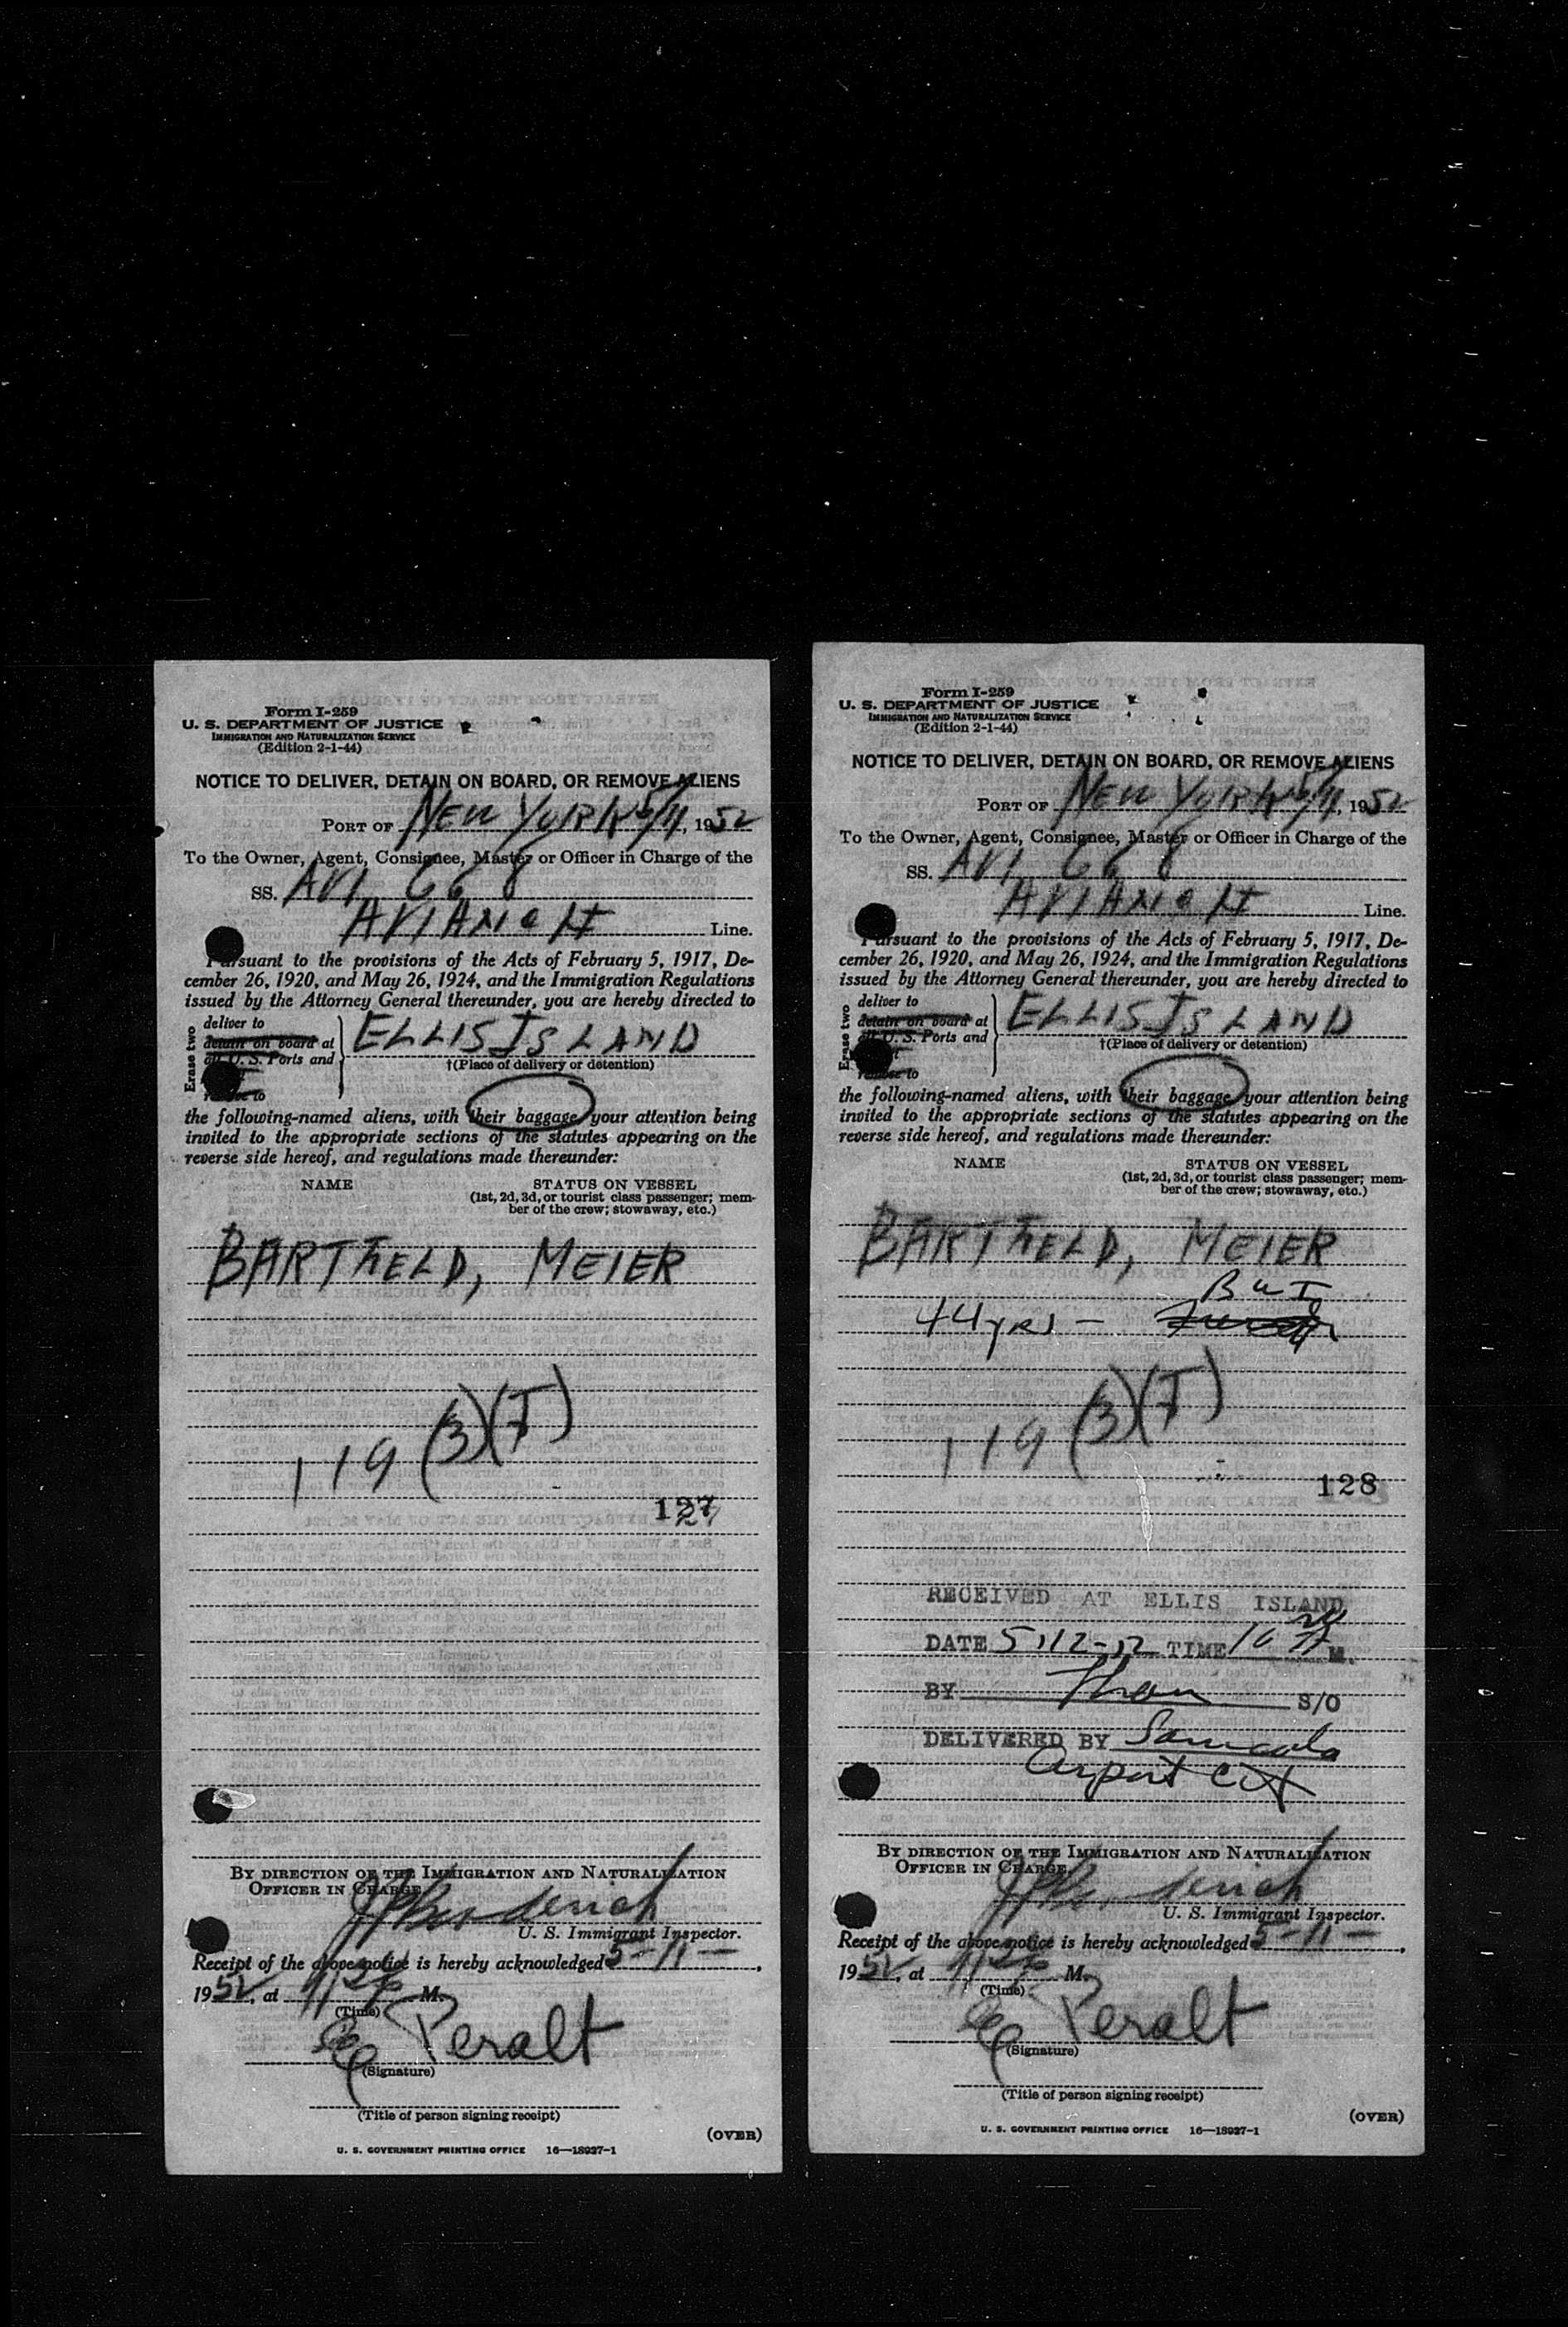 Form I-259
U. S. DEPARTMENT OF JUSTICE
IMMIGRATION AND NATURALIZATION SERVICE
(Edition 2-1-44)
NOTICE TO DELIVER, DETAIN ON BOARD, OR REMOVE ALIENS
PORT OF NEW YORK 5/11, 1952
To the Owner, Agent, Consignee, Master or Officer in Charge of the
SS. AVI 668
Line.
Pursuant to the provisions of the Acts of February 5, 1917, De-
cember 26, 1920, and May 26, 1924, and the Immigration Regulations
issued by the Attorney General thereunder, you are hereby directed to
Erase two
deliver to
detain on board at
all U. S. Ports and
ELLIS ISLAND
†(Place of delivery or detention)
the following-named aliens, with their baggage your attention being
invited to the appropriate sections of the statutes appearing on the
reverse side hereof, and regulations made thereunder:
NAME
STATUS ON VESSEL
(1st, 2d, 3d, or tourist class passenger; mem-
ber of the crew; stowaway, etc.)
BARTHELD, MEIER
119 (3)(I)
127
BY DIRECTION OF THE IMMIGRATION AND NATURALIZATION
OFFICER IN CHARGE.
U. S. Immigrant Inspector.
Receipt of the above notice is hereby acknowledged 5-11-,
1952, at M.
(Time)
Peralt
(Signature)
(Title of person signing receipt)
(OVER)
U. S. GOVERNMENT PRINTING OFFICE 16—18927-1
Form I-259
U. S. DEPARTMENT OF JUSTICE
IMMIGRATION AND NATURALIZATION SERVICE
(Edition 2-1-44)
NOTICE TO DELIVER, DETAIN ON BOARD, OR REMOVE ALIENS
PORT OF NEW YORK 5/11, 1952
To the Owner, Agent, Consignee, Master or Officer in Charge of the
SS. AVI 668
Line.
Pursuant to the provisions of the Acts of February 5, 1917, De-
cember 26, 1920, and May 26, 1924, and the Immigration Regulations
issued by the Attorney General thereunder, you are hereby directed to
Erase two
deliver to
detain on board at
all U. S. Ports and
ELLIS ISLAND
†(Place of delivery or detention)
the following-named aliens, with their baggage your attention being
invited to the appropriate sections of the statutes appearing on the
reverse side hereof, and regulations made thereunder:
NAME
STATUS ON VESSEL
(1st, 2d, 3d, or tourist class passenger; mem-
ber of the crew; stowaway, etc.)
BARTHELD, MEIER
44 yrs -
119 (3)(I)
128
RECEIVED AT ELLIS ISLAND
DATE 5-12-52 TIME M.
BY S/O
DELIVERED BY
Airport
BY DIRECTION OF THE IMMIGRATION AND NATURALIZATION
OFFICER IN CHARGE.
U. S. Immigrant Inspector.
Receipt of the above notice is hereby acknowledged 5-11-,
1952, at M.
(Time)
Peralt
(Signature)
(Title of person signing receipt)
(OVER)
U. S. GOVERNMENT PRINTING OFFICE 16—18927-1